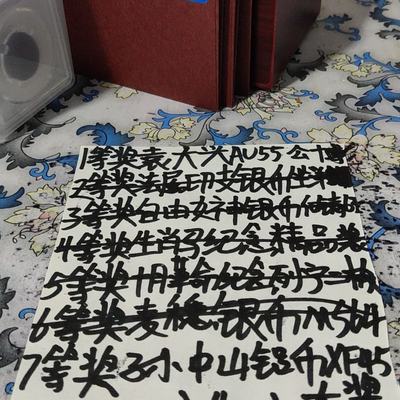 1等奖袁大头AU55公十
2等奖法属印支银币坐洋
3等奖自由女神银币
4等奖生肖马纪念精品奖
5等奖十月革命纪念 子二枚
6等奖麦穗银币MS64
7等奖孙小中山铝币XF45
奖